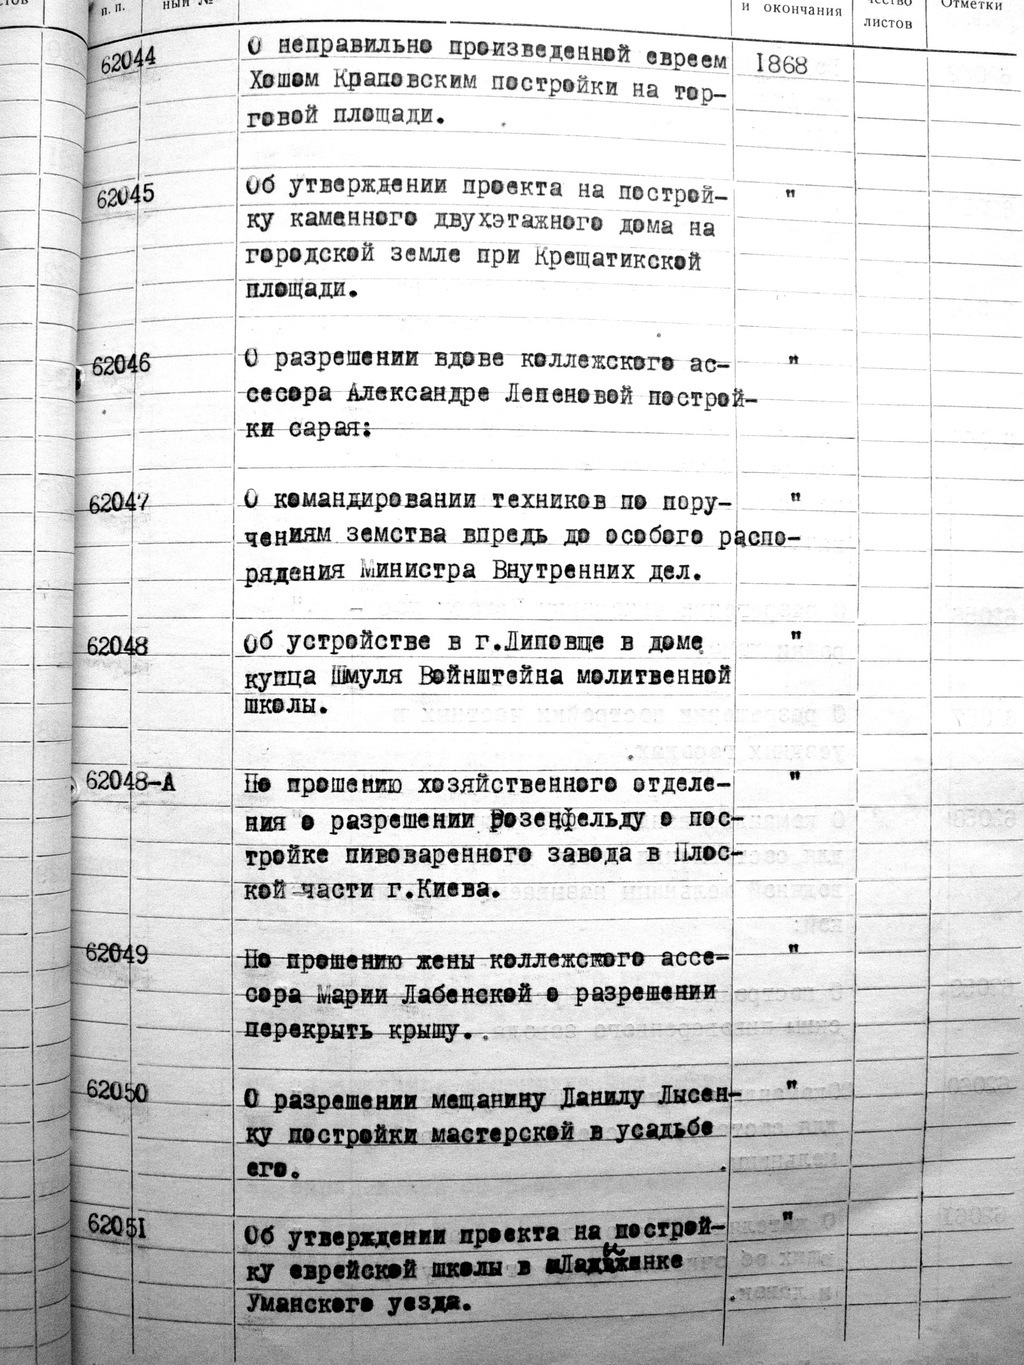 п. п.
ный №
и окончания
листов
Отметки
62044 О неправильно произведенной евреем 1868
Хошом Краповским постройки на тор-
говой площади.
62045 Об утверждении проекта на построй- "
ку каменного двухэтажного дома на
городской земле при Крещатикской
площади.
62046 О разрешении вдове коллежского ас- "
сесора Александре Лепеновой построй-
ки сарая:
62047 О командировании техников по пору- "
чениям земства впредь до особого распо-
рядения Министра Внутренних дел.
62048 Об устройстве в г.Липовце в доме "
купца Шмуля Войнштейна молитвенной
школы.
62048-А По прошению хозяйственного отделе- "
ния о разрешении Розенфельду о пос-
тройке пивоваренного завода в Плос-
кой части г.Киева.
62049 По прошению жены коллежского ассе- "
сора Марии Лабенской о разрешении
перекрыть крышу.
62050 О разрешении мещанину Данилу Лысен- "
ку постройки мастерской в усадьбе
его.
62051 Об утверждении проекта на построй- "
ку еврейской школы в Ладыжинке
Уманского уезда.